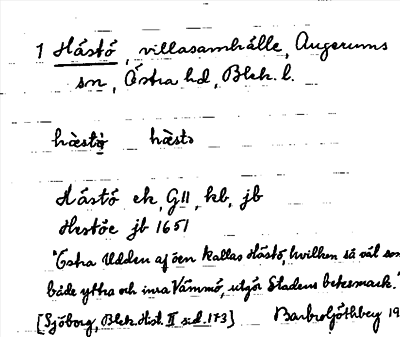 1 Hästö, villasamhälle, Augerums
sn, Östra hd, Blek. l.
hæstö hæstɔ
Hästö ek, GII, kb, jb
Hestöe jb 1651
"Östra Udden af öen kallas Hästö, hvilken så väl som
både yttra och inra Vämmö, utgör Stadens betesmark."
[Sjöborg, Blek. Hist. II sid. 173]